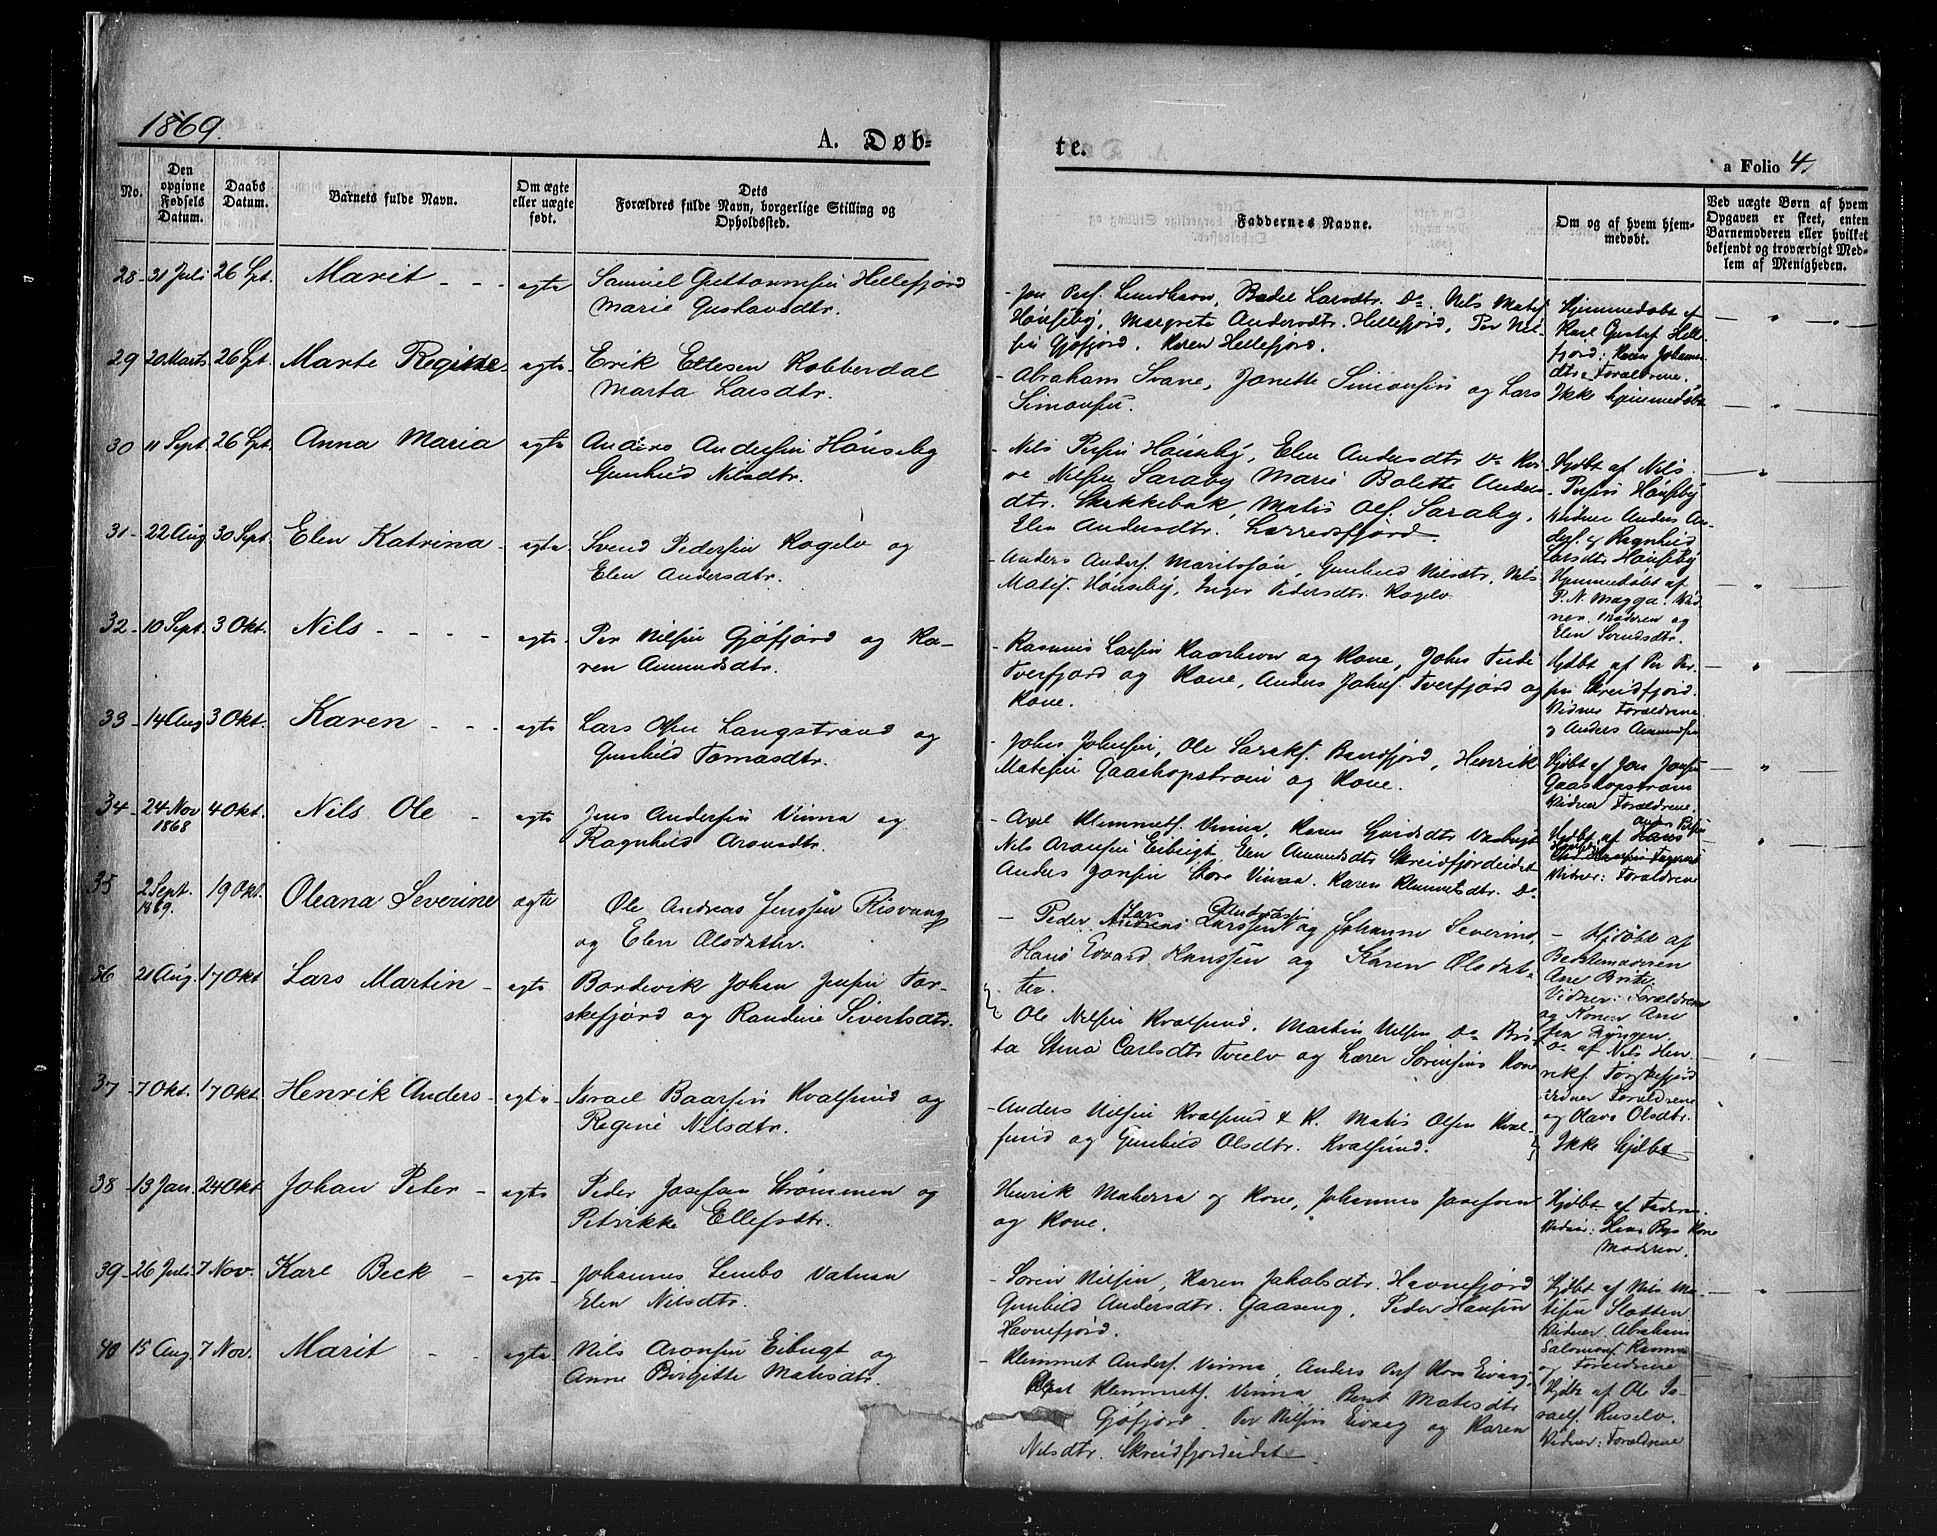 1869.
A. Døb-
te.
a Folio 4,
No.
Den opgivne Fødsels Datum.
Daabs Datum.
Barnets fulde Navn.
Om ægte eller uægte født.
Dets
Forældres fulde Navn, borgerlige Stilling og
Opholdssted.
Faddernes Navne.
Om og af hvem hjem-
medøbt.
Ved uægte Børn af hvem
Opgaven er skeet, enten
Barnemoderen eller hvilket
bekjendt og troværdigt Med-
lem af Menigheden.
28 31 Juli 26 Spt. Marit - - - ægte Samuel Hellefjord
Marie Gustavsdtr.
- Jon Lundhavn, Bádel Larsdtr. Do. Nils Matis
Hönseby, Margrete Andersdtr. Hellefjörd, Per Nil-
sen Gjøfjord. Karen Hellefjord.
Hjemmedøbt af
Karl Gustaf Helle-
fjord: Karen Johanne
dtr. Forældrene.
29 20 Marts 26 Spt. Marte Regine ægte Erik Ellesen Kobberdal
Marta Larsdtr.
- Abraham Svane, Janette Simonsen og Lars
Simonsen.
Ikke hjemmedøbt
30 11 Sept. 26 Spt. Anna Maria ægte Anders Andersen Hönseby
Gunhild Nilsdtr.
- Nils Persen Hönseby, Elen Andersdtr. Do
Nilsen Saraby Marie Bolette Anders-
dtr. Skakkebak, Matis Olsf. Saraby,
Elen Andersdtr. Larredsfjord.
Hjdbt af Nils
Persen Hönseby
Vidner Anders An-
dersf. og Ragnhild
Larsdtr. Hönseby
31 22 Aug 30 Sept. Elen Katrina - ægte Svend Pedersen Kogelv og
Elen Andersdtr.
- Anders Andersf. Gunhild Nilsdtr. Nils
Matisf. Hönseby, Inger Pedersdtr. Kogelv
Hjemmedøbt af
P. N. Magga. Vid-
ner. Moderen og
Elen Svendsdtr.
32 10 Sept. 3 Okt. Nils - - - - ægte Per Nilsen Gjöfjörd og Ka-
ren Amundsdtr.
- Rasmus Larsen og Kone, Johs
Tverfjord og Kone, Anders Johnsf. Tverfjord og
Kone.
Hjdbt af Per Per-
sen Skreidfjord.
Vidner Forældrene
og Anders Amundsen
33 14 Aug 3 Okt. Karen - - - ægte Lars Olsen Langstrand og
Gunhild Tomasdtr.
- Johs Johnsen, Ole Bansfjord, Henrik
Matisen Gaashopstrøm og Kone.
Hjdbt af Jon Jonsen
Gaashopstrøm
Vidner Forældrene.
34 24 Nov 1868 4 Okt. Nils Ole - ægte Jens Andersen Vinna og
Ragnhild Aronsdtr.
- Axel Klemmetf. Vinna, Karen
Nils Aronsen Eibugt, Elen Amundsdtr Skreidfjordeidet
Anders Jonsen Store Vinna. Karen Klemmetsdtr. Do
Hjdbt af
Vidner: Forældrene
35 2 Sept. 1869. 19 Okt. Oleana Severine ægte Ole Andreas Jenssen Risvaag
og Elen Olsdatter.
- Peder Lars og Johanne Severine,
Hans Edvard Hanssen og Karen Olsdat-
ter.
- Hjdbt af
Bedstemoderen
Ane Brite.
Vidner: Forældrene
og Konen Ane
36 21 Aug. 17 Okt Lars Martin - ægte Bordevik Johan Jensen Tor-
skefjord og Randine Sivertsdtr.
- Ole Nilsen Kvalsund. Martin Nilsen Do Bri-
ta Stina Carlsdtr. og Lærer Sörensens Kone
Do af Nils Hen-
rikf. Torskefjord
Vidner Forældrene
og Olava Olsdtr.
37 7 Okt. 17 Okt Henrik Anders - ægte Israel Baarsen Kvalsund og
Regine Nilsdtr.
- Anders Nilsen Kvalsund & K. Matis Olsen Kval-
sund og Gunhild Olsdtr. Kvalsund.
Ikke hjdbt
38 13 Jan. 24 Okt Johan Peter - ægte Peder Josefsen Strømmen og
Petrikke Ellefsdtr.
Henrik Maherra og Kone, Johannes Josefsen
og Kone.
Hjdbt af Faderen.
Vidner: Kone
Moderen.
39 26 Juli 7 Nov. Karl Beck - ægte Johannes Lembo Vatnan
Elen Nilsdtr.
- Sören Nilsen, Karen Jakobsdtr. Havnefjörd
Gunhild Andersdtr. Gaaseng, Peder Hansen
Havnefjörd.
Hjdbt af Nils Ma-
tisen Slotten
Vidner Abraham
Salomonf.
og Forældrene
40 15 Aug. 7 Nov. Marit - - ægte Nils Aronsen Eibugt og
Anne Birgitte Matisdtr.
- Klemmet Andersf. Vinna, Anders Persf.
Axel Klemmetf. Vinna, Berit Matisdtr
Gjøfjord. Per Nilsen og Karen
Nilsdtr. Skreidfjordeidet.
Hjdbt af Ole Is-
raelf. Russelv.
Vidner: Forældrene